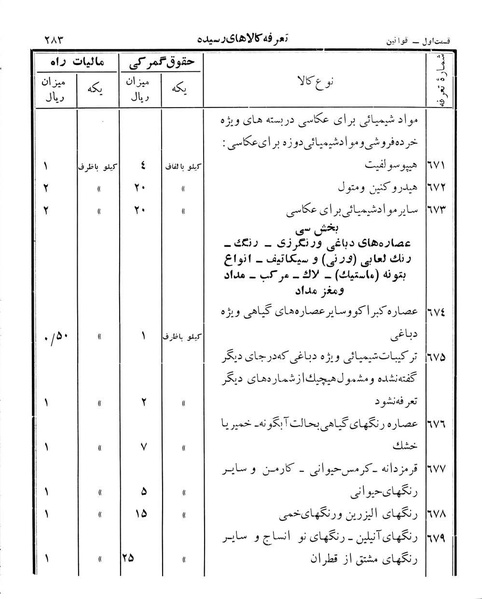 قسمت اول ــ قوانین تعرفه کالاهای رسیده ۲۸۳
شمارهٔ تعرفه نوع کالا حقوق گمرکی مالیات راه
یکه میزان ریال یکه میزان ریال
مواد شیمیائی برای عکاسی دربسته های ویژه
خرده‌فروشی و مواد شیمیائی دوزه برای عکاسی:
۶۷۱ هیپوسولفیت کیلو بالفاف ۴ کیلو باظرف ۱
۶۷۲ هیدروکنین و متول » ۲۰ » ۲
۶۷۳ سایر مواد شیمیائی برای عکاسی » ۲۰ » ۲
بخش سی
عصاره‌های دباغی و رنگرزی ــ رنگ ــ
رنگ لعابی (ورنی) و سیکاتیف ــ انواع
بتونه (ماستیک) ــ لاک ــ مرکب ــ مداد
و مغز مداد
۶۷۴ عصاره کبراکو و سایر عصاره‌های گیاهی ویژه
دباغی کیلو باظرف ۱ » ۰/۵۰
۶۷۵ ترکیبات شیمیائی ویژه دباغی که درجای دیگر
گفته نشده و مشمول هیچیک از شماره‌های دیگر
تعرفه نشود » ۲ » ۱
۶۷۶ عصاره رنگهای گیاهی بحالت آبگونه ــ خمیر یا
خشک » ۷ » ۱
۶۷۷ قرمزدانه ــ کرمس حیوانی ــ کارمن و سایر
رنگهای حیوانی » ۵ » ۱
۶۷۸ رنگهای الیزرین و رنگهای خمی » ۱۵ » ۱
۶۷۹ رنگهای آنیلین ــ رنگهای نو انساج و سایر
رنگهای مشتق از قطران » ۲۵ » ۱